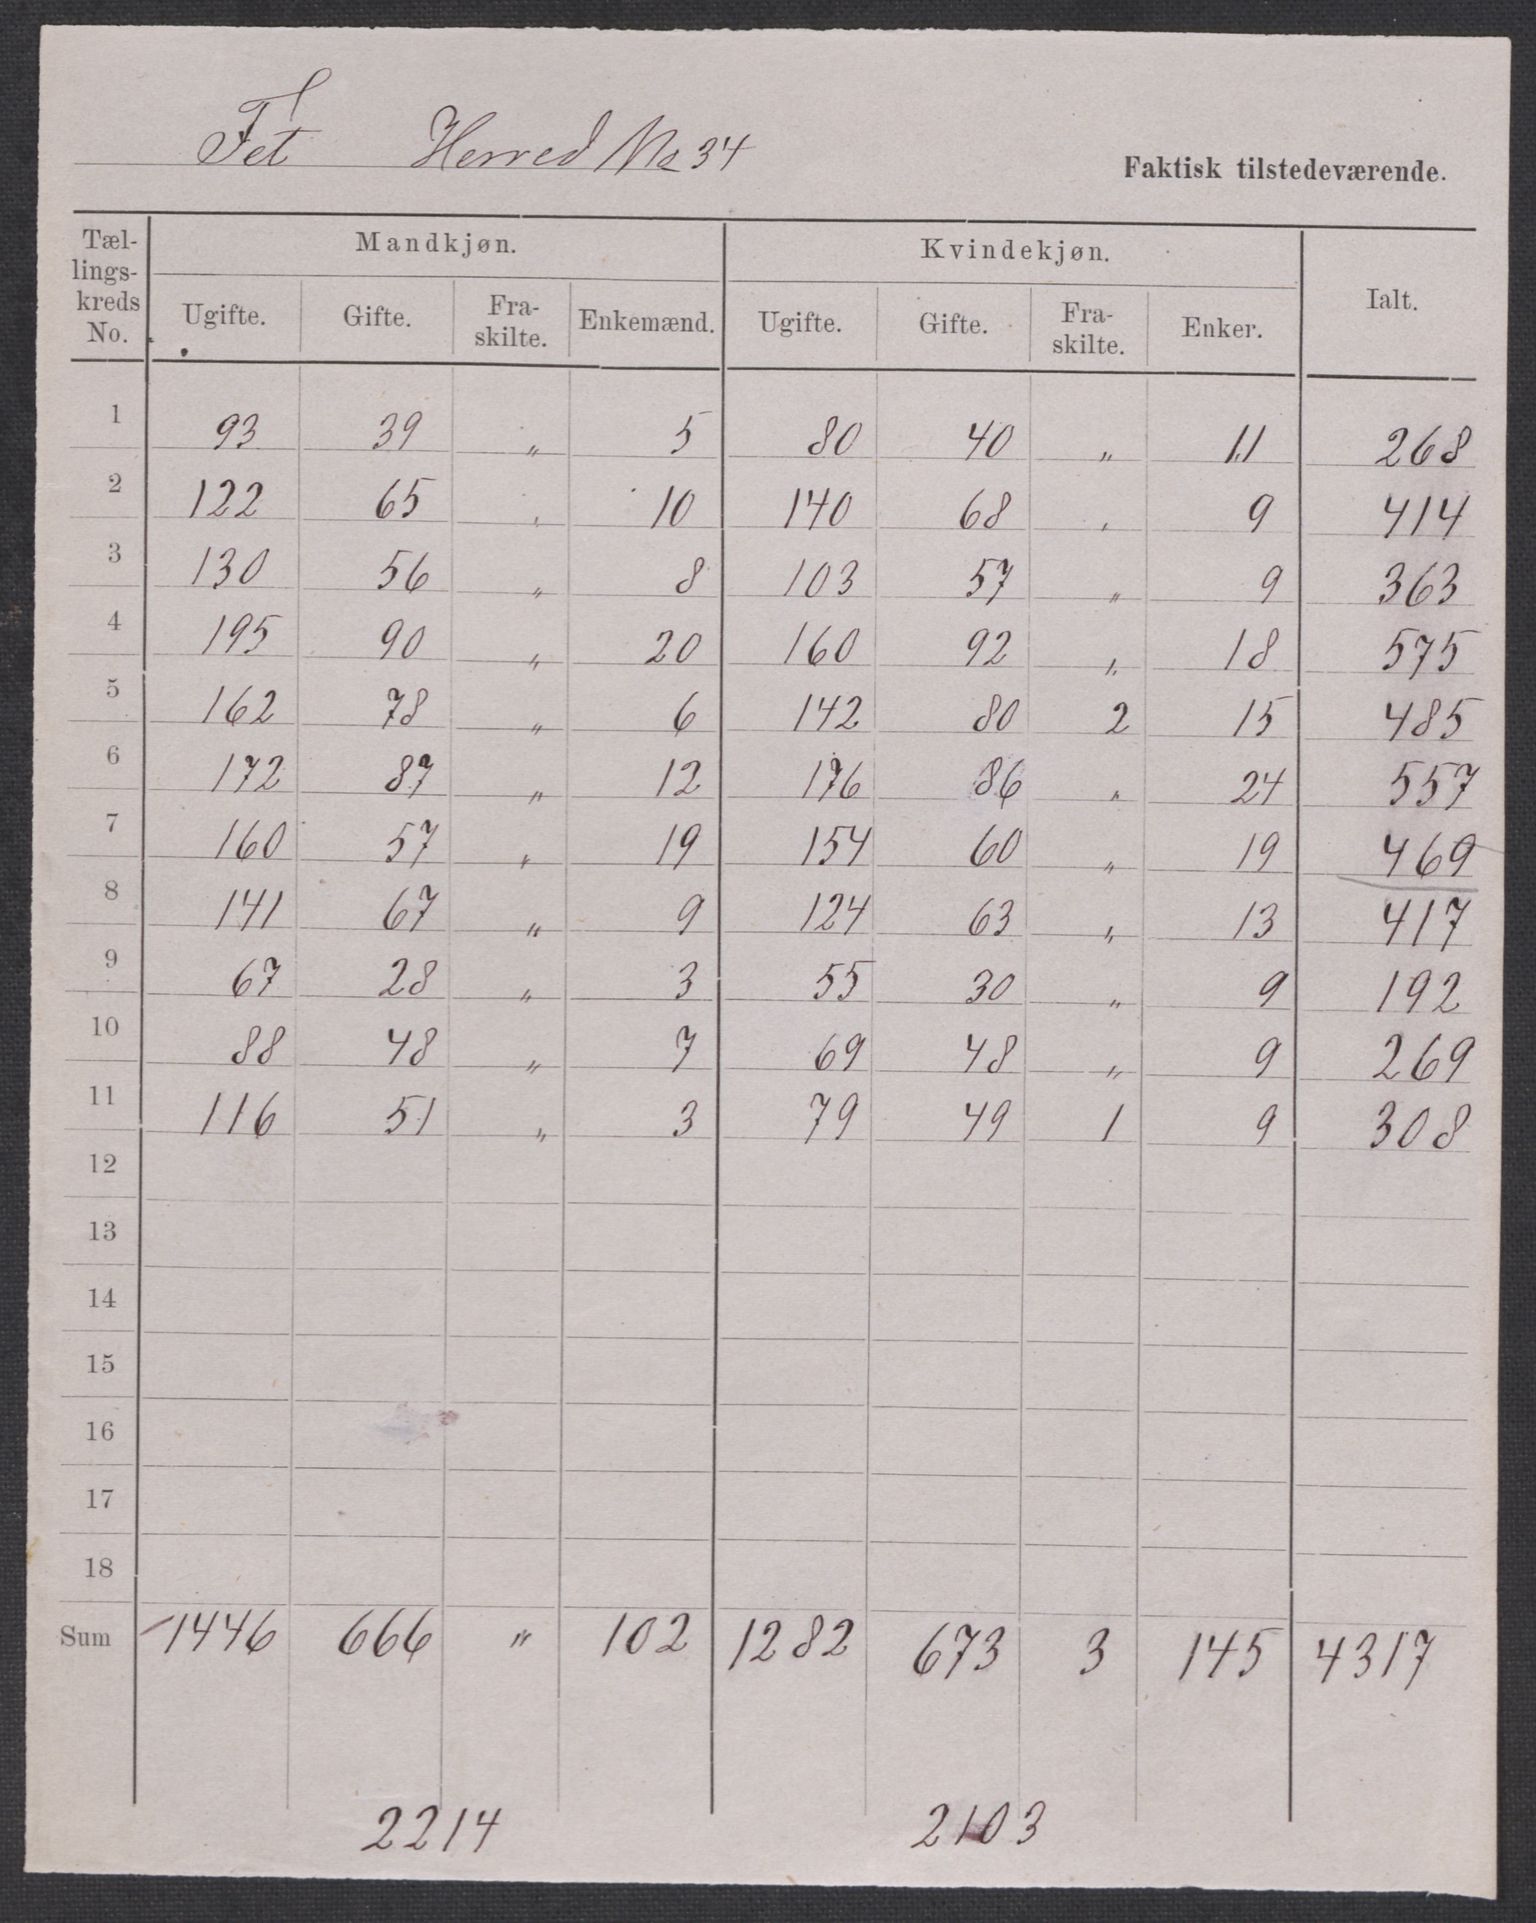 Fet Herred No 34
Faktisk tilstedeværende.
Tællingskreds No. Mandkjøn. Kvindekjøn. Ialt.
Ugifte. Gifte. Fraskilte. Enkemænd. Ugifte. Gifte. Fraskilte. Enker.
1 93 39 " 5 80 40 " 11 268
2 122 65 " 10 140 68 " 9 414
3 130 56 " 8 103 57 " 9 363
4 195 90 " 20 160 92 " 18 575
5 162 78 " 6 142 80 2 15 485
6 172 87 " 12 176 86 " 24 557
7 160 57 " 19 154 60 " 19 469
8 141 67 " 9 124 63 " 13 417
9 67 28 " 3 55 30 " 9 192
10 88 48 " 7 69 48 " 9 269
11 116 51 " 3 79 49 1 9 308
12
13
14
15
16
17
18
Sum 1446 666 " 102 1282 673 3 145 4317
2214 2103